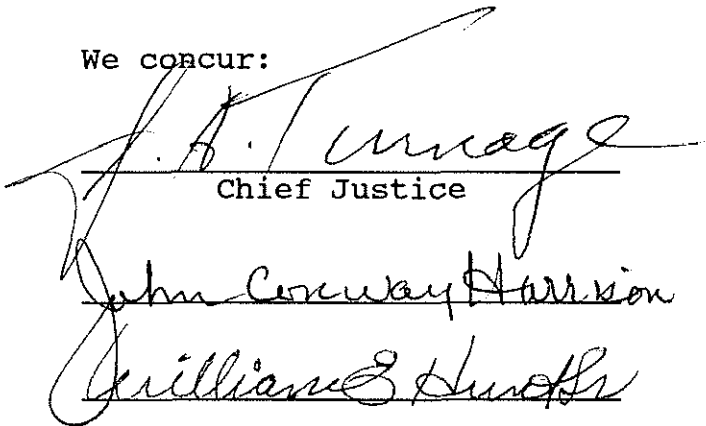 We concur:
J. A. Turnage
Chief Justice
John Conway Harrison
William E Hunt Sr